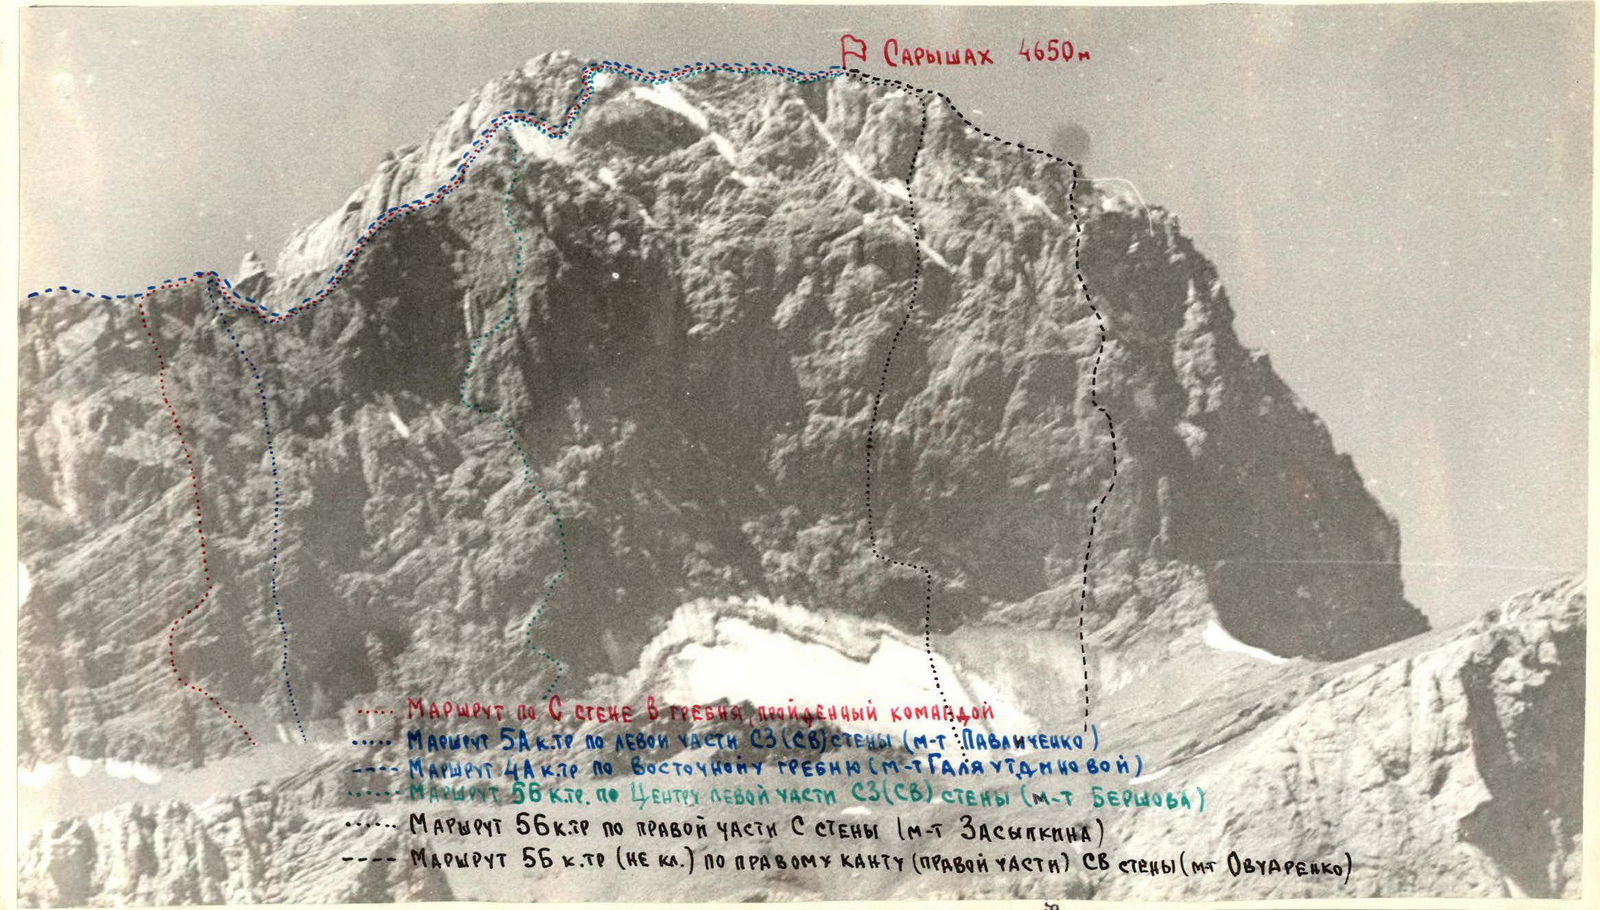 Сарышах 4650м
Маршрут по С стене В гребня, пройденный командой
Маршрут 5А к.тр по левой части СЗ (СВ) стены (м-т Павличенко)
Маршрут 4А к.тр по Восточному гребню (м-т Галяутдиновой)
Маршрут 5Б к.тр. по Центру левой части СЗ (СВ) стены (м-т Бершова)
Маршрут 5Б к.тр по правой части С стены (м-т Засыпкина)
Маршрут 5Б к.тр (не кл.) по правому канту (правой части) СВ стены (м-т Овчаренко)